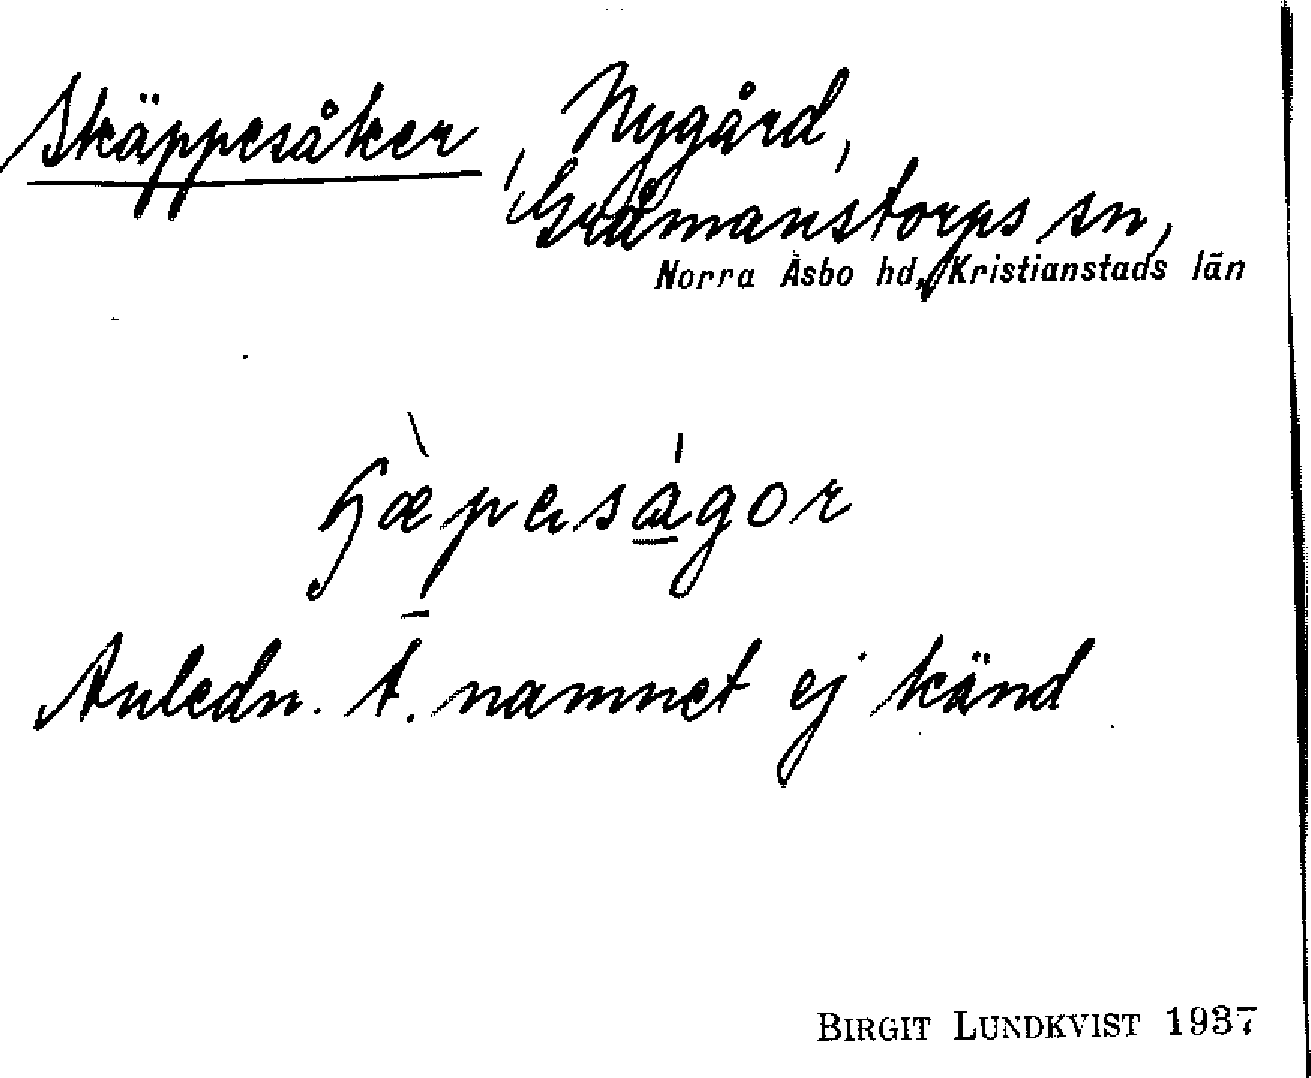 Skäppesåker, Nygård,
Gråmanstorps sn,
Norra Åsbo hd, Kristianstads län
ɧæ̀pɐsá̲gor
Anledn. t. namnet ej känd
BIRGIT LUNDKVIST 1937